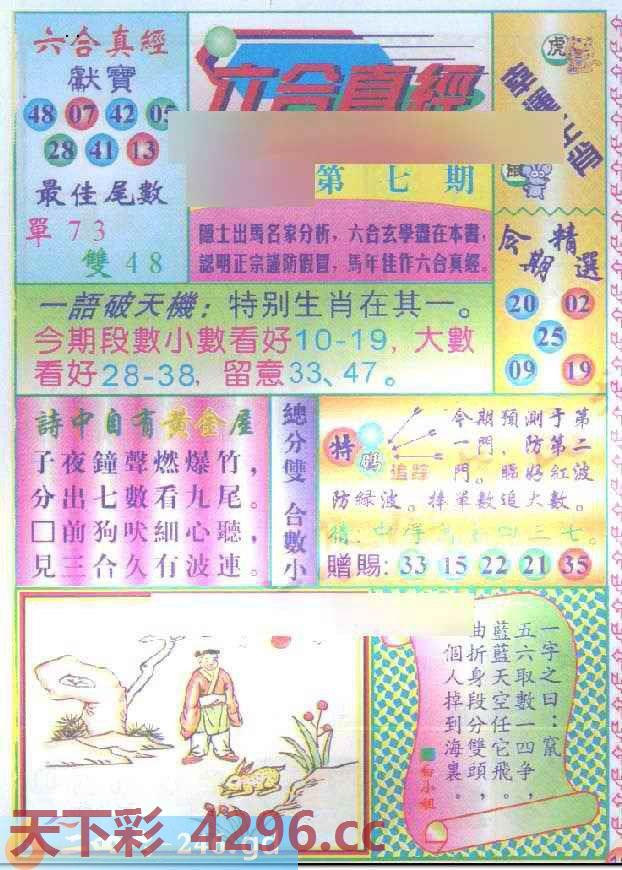 六合真經
獻寶
48 07 42 05
28 41 13
最佳尾數
單 7 3
雙 4 8
六合真經
第七期
隱士出馬名家分析，六合玄學盡在本書，
認明正宗謹防假冒，馬年佳作六合真經。
虎
鼠
今期精選
20 02
25
09 19
一語破天機：特別生肖在其一。
今期段數小數看好10-19，大數
看好28-38，留意33、47。
詩中自有黃金屋
子夜鐘聲燃爆竹，
分出七數看九尾。
□前狗吠細心聽，
見三合久有波連。
總分雙 合數小
特碼
追踪
今期預測于第
一門，防第二
門。睇好紅波
防綠波。捧單數追大數。
贈賜：33 15 22 21 35
一字之曰：竄
五六取數一四爭，
藍藍天空任它飛。
曲折身段分雙頭，
個人掉到海裏。
白小姐
天下彩 4296.cc